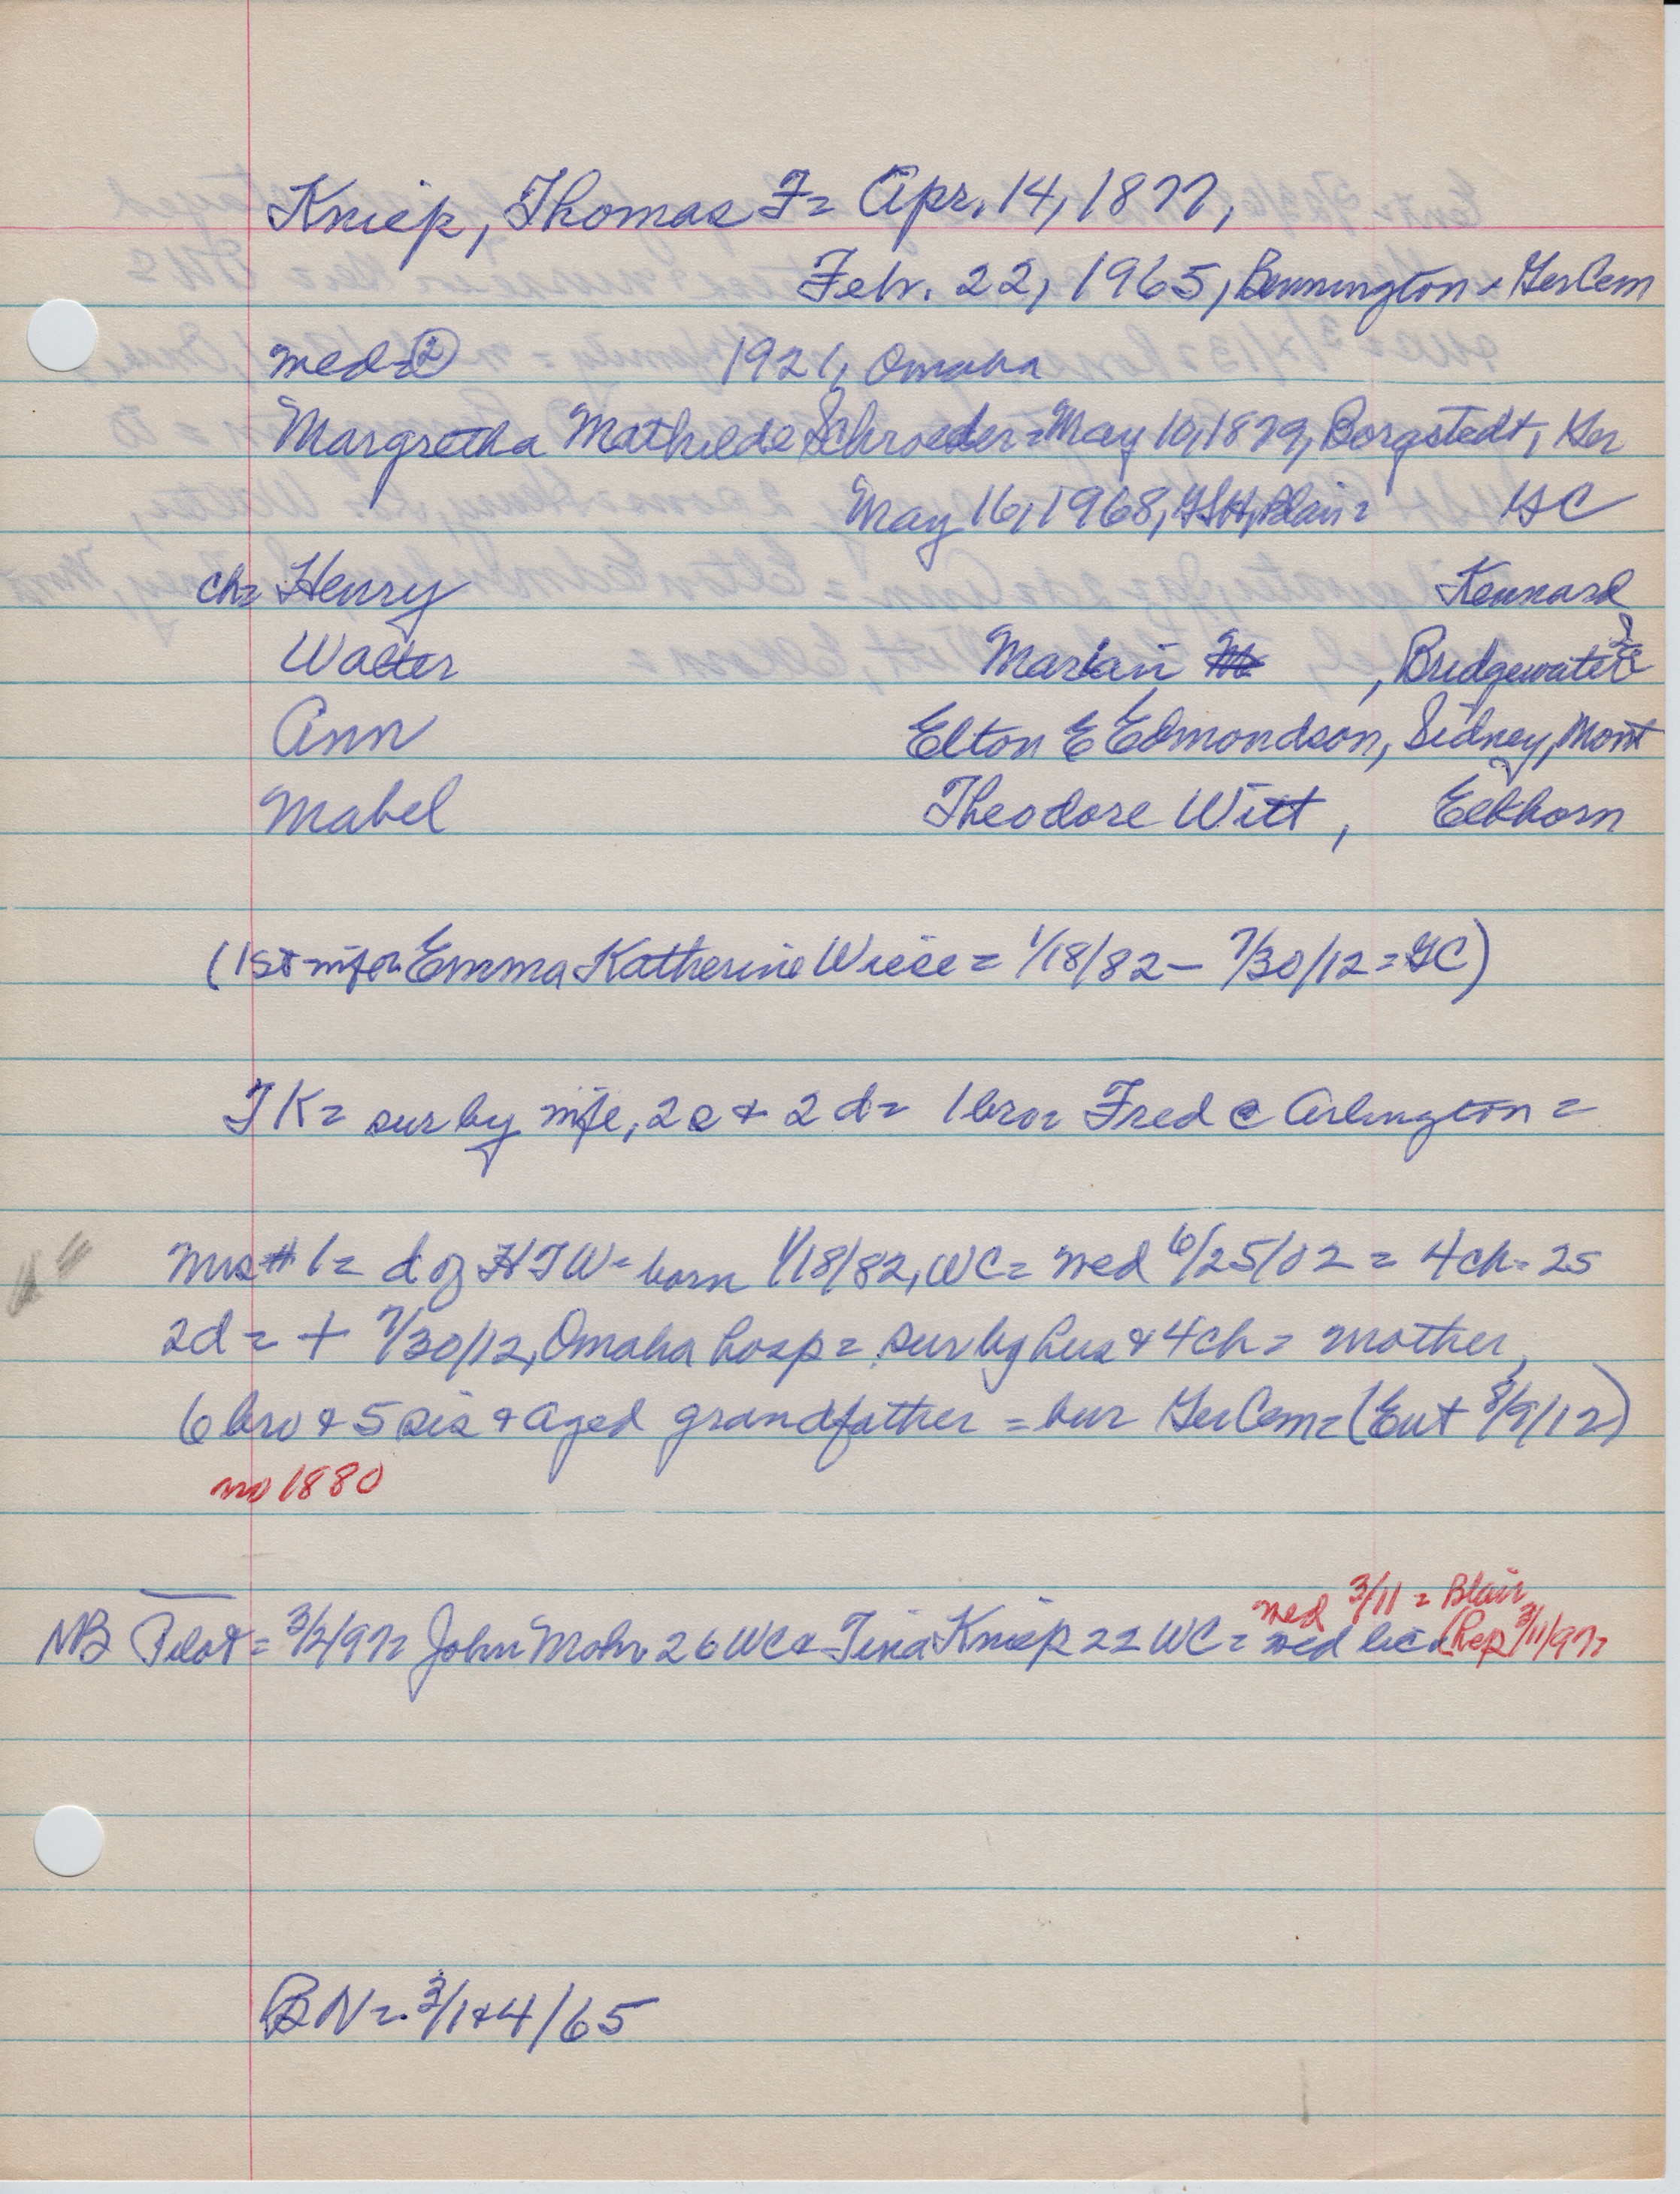 Kniep, Thomas F = Apr. 14, 1877,
Febr. 22, 1965, Bennington = GerCem
med = ② 1921, Omaha
Margretha Mathilde Schroeder = May 10, 1879, Borgstedt, Ger
May 16, 1968, GSH, Blair = GC
ch = Henry Kennard
Walter Marian , Bridgewater
Ann Elton E Edmondson, Sidney, Mont
Mabel Theodore Witt, Elkhorn
(1st wife = Emma Katherine Wiese = 1/18/82 – 7/30/12 = GC)
TK = sur by wife, 2 s & 2 d = 1 bro = Fred @ Arlington =
Mrs #1 = d of HTW = born 1/18/82, WC = med 6/25/02 = 4 ch = 2s
2d = + 7/30/12, Omaha hosp = sur by hus & 4 ch = mother,
6 bro & 5 sis & aged grandfather = bur GerCem = (Ent 8/9/12)
no 1880
med 3/11 = Blair
NB Pilot = 3/2/97 = John Mohr 26 WC & Tina Kniep 22 WC = med lic = (Rep 3/11/97)
BN = 3/1 & 4/65